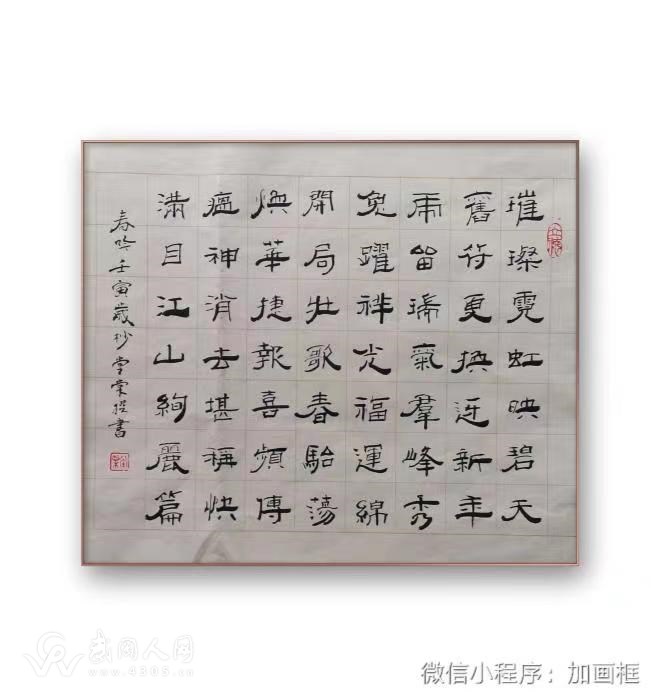 璀璨霓虹映碧天
舊符更換迎新年
虎留瑞氣羣峰秀
兔躍祥光福運綿
開局壯歌春駘蕩
焕華捷報喜頻傳
瘟神消去堪稱快
滿目江山絢麗篇
春吟壬寅歲杪書
微信小程序：加画框